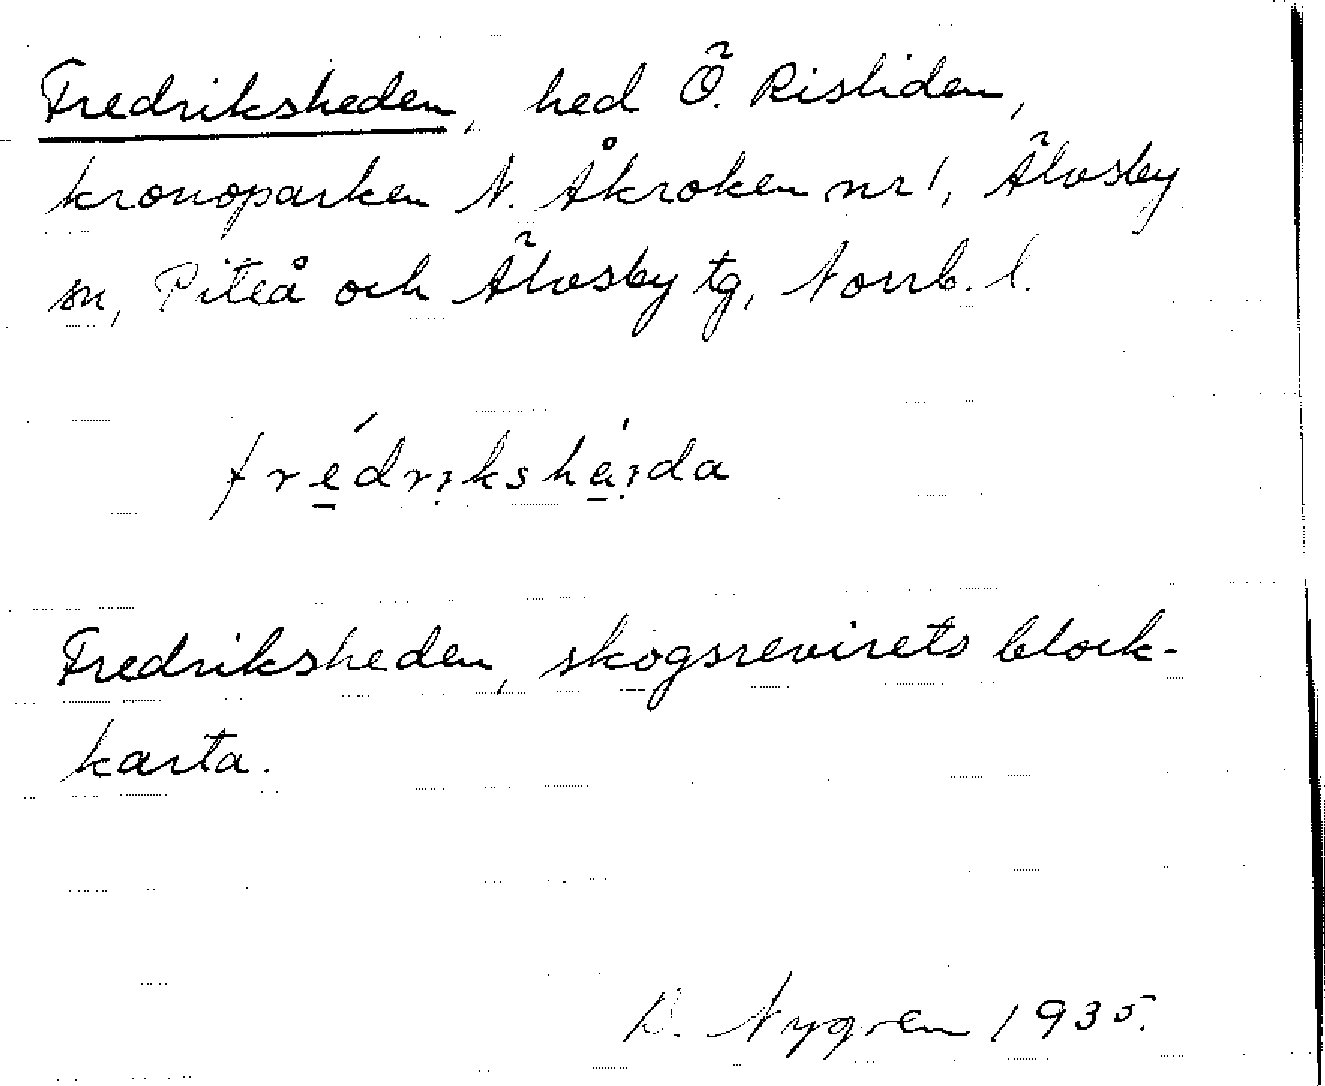 Fredriksheden, hed Ö. Risliden,
kronoparken N. Åkroken nr 1, Älvsby
sn, Piteå och Älvsby tg, Norrb. l.
frédrikshéida
Fredriksheden, skogsrevirets block-
karta.
Nygren 1935.